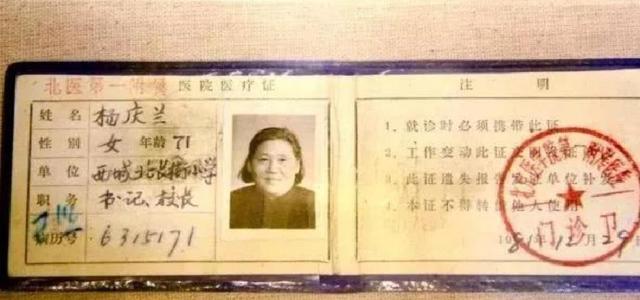 北医第一附属医院医疗证
姓名 杨庆兰
性别 女 年龄 71
单位 西城北长街小学
职务 书记、校长
病历号 6315171
注明
1、就诊时必须携带此证
2、工作变动此证
3、此证遗失报告发证单位补发
4、本证不得转借他人使用
门诊
1981年12月29日